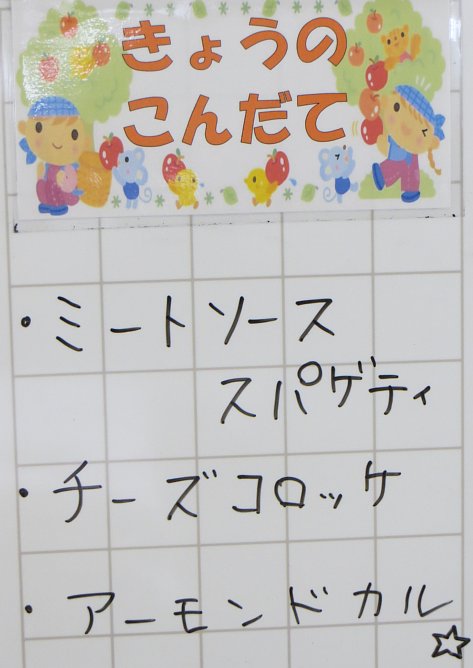 きょうの
こんだて
・ミートソース
スパゲティ
・チーズコロッケ
・アーモンドカル
☆